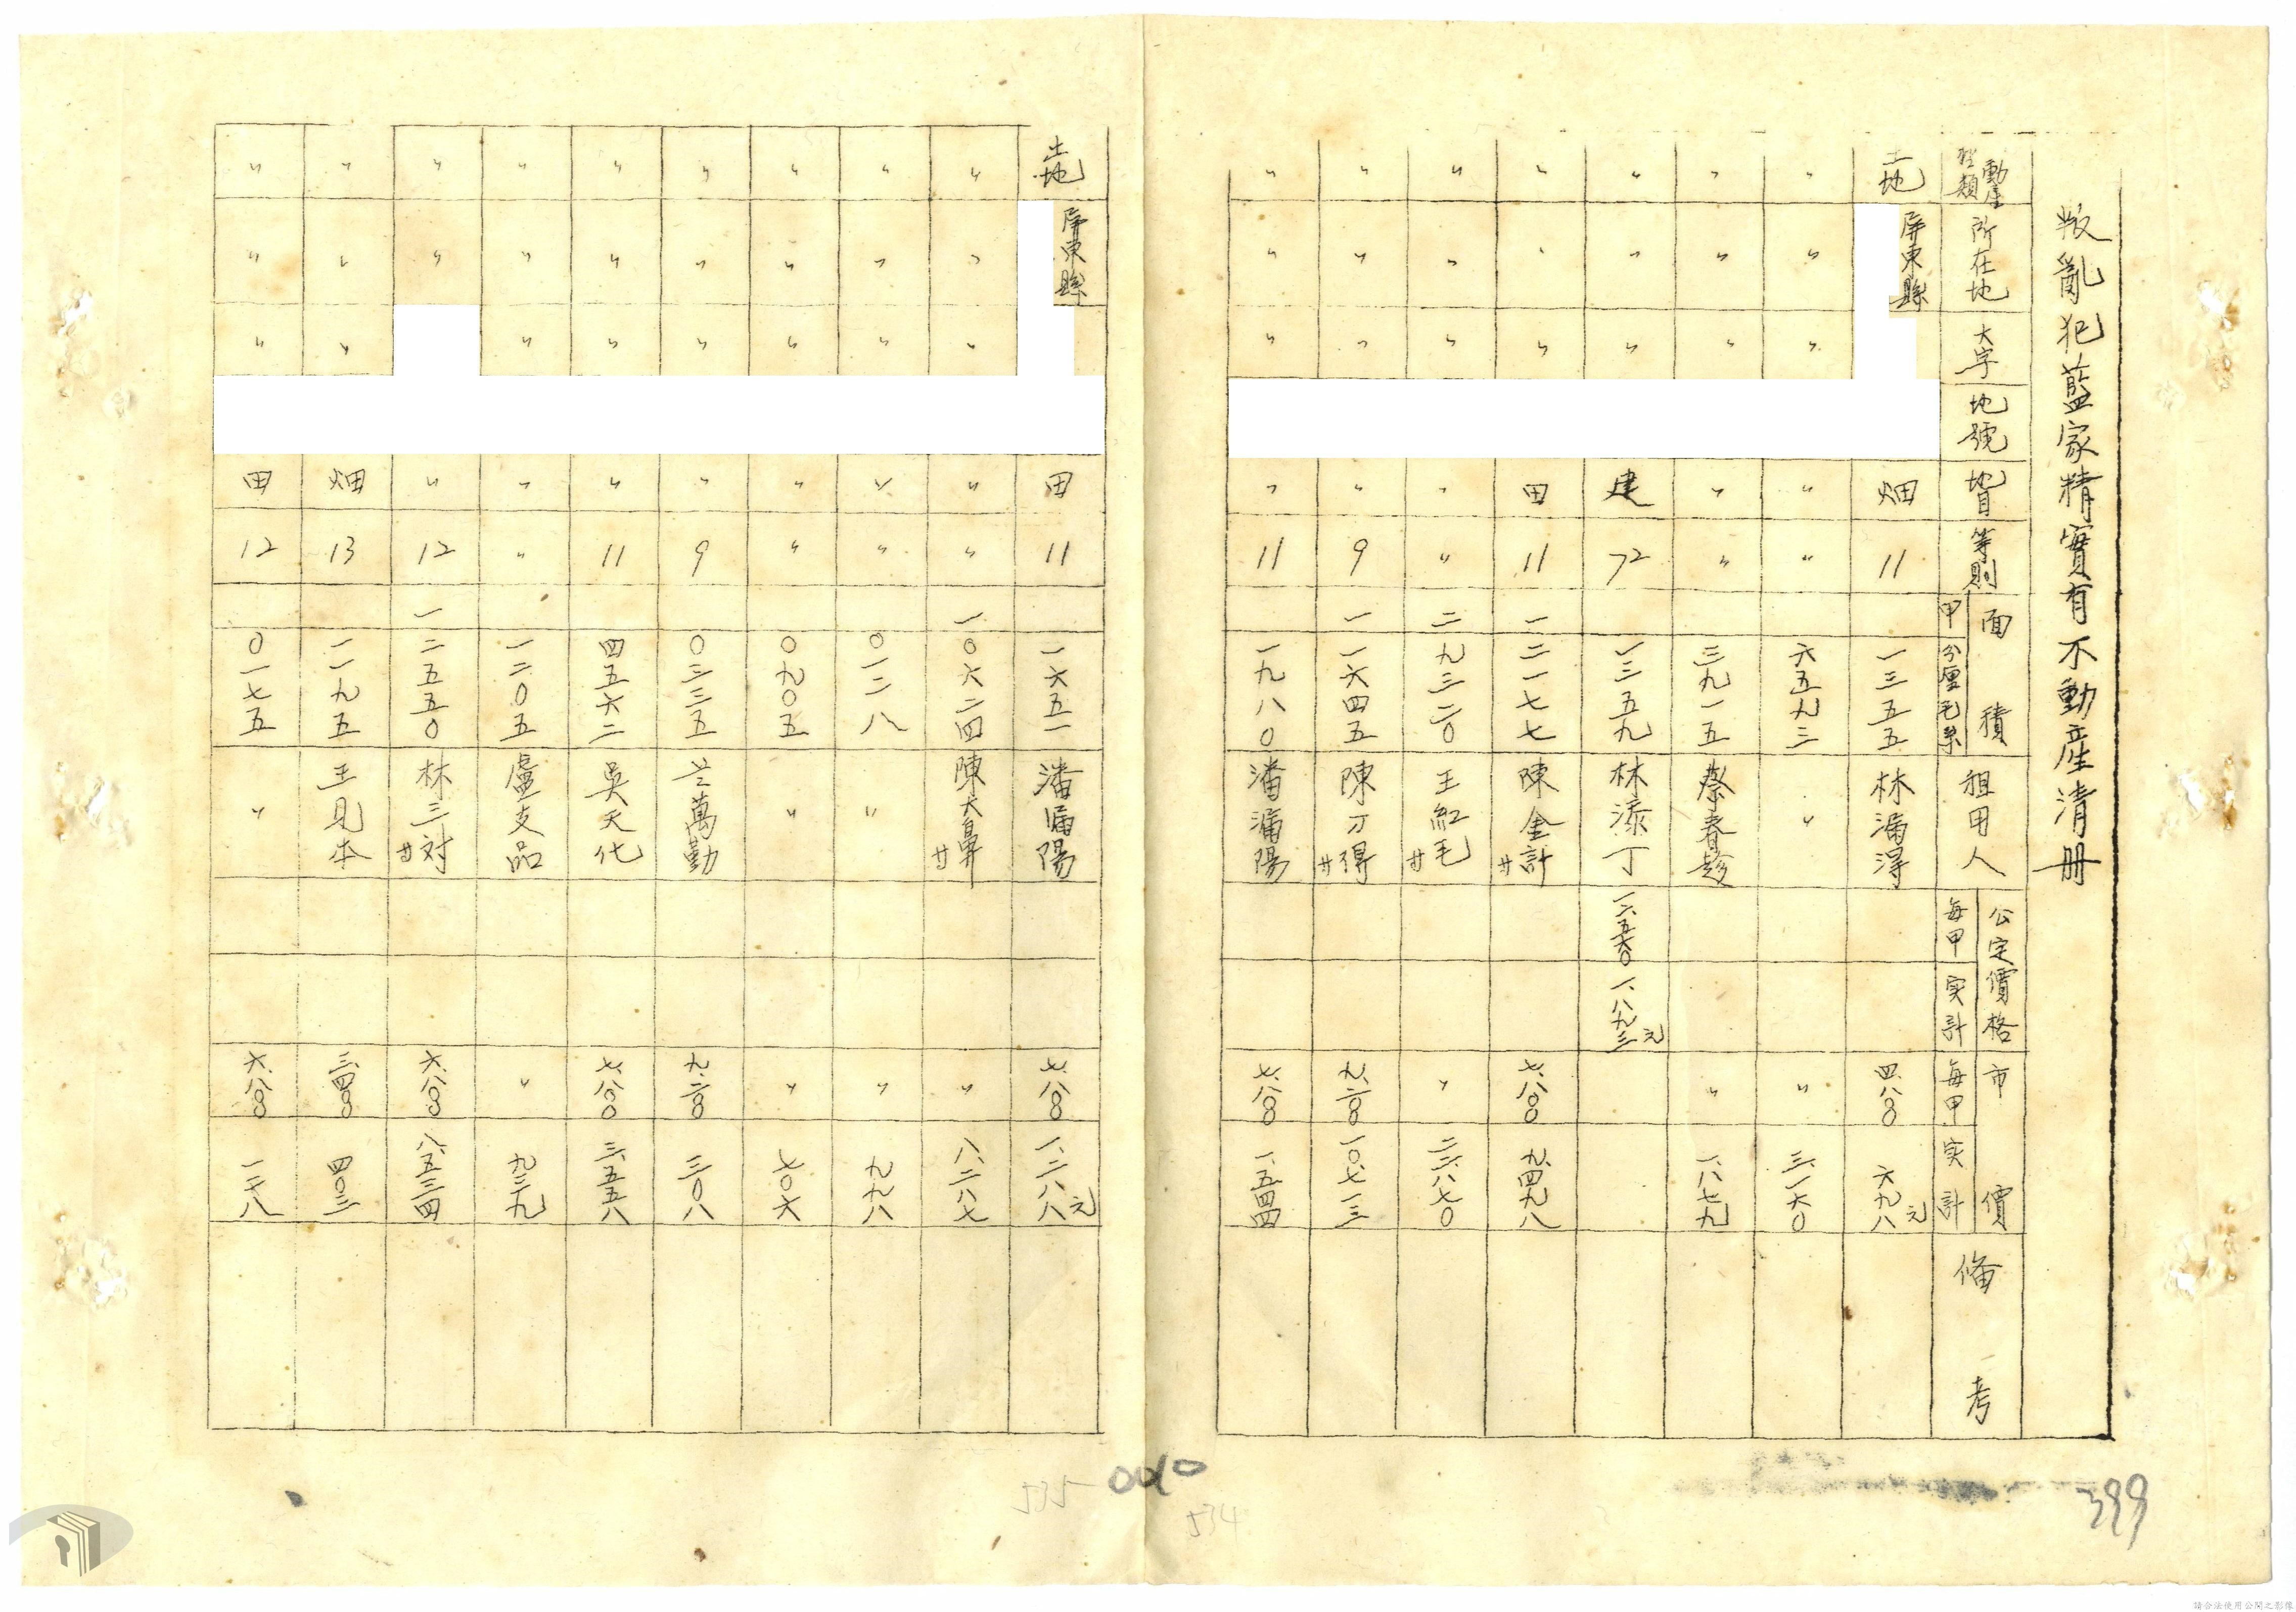 叛亂犯藍家精實有不動產清册
動產種類 所在地 大字 地號 地目 等則 面積 甲 分厘毛糸 租用人 公定價格 每甲 实計 市價 每甲 实計 備考
土地 屏東縣 畑 11 一三五五 林滿得 四、八〇〇 六九八元
〃 〃 〃 〃 〃 六五九三 〃 〃 三、一六〇
〃 〃 〃 〃 〃 三九一五 蔡春 〃 一、八七九
〃 〃 〃 建 72 一三五九 林添丁 一、八九三元
〃 〃 〃 田 11 一 二一七七 陳金計 廿 七、八〇〇 九、四九八
〃 〃 〃 〃 〃 二 九三二〇 王紅毛 廿 〃 二二、八七〇
〃 〃 〃 〃 9 一 一六四五 陳刀得 廿 九、二〇〇 一〇、七一三
〃 〃 〃 〃 11 一九八〇 潘滿陽 七、八〇〇 一、五四四
土地 屏東縣 田 11 一六五一 潘滿陽 七、八〇〇 一、二八八元
〃 〃 〃 〃 〃 一 〇六二四 陳大鼻 廿 〃 八、二八七
〃 〃 〃 〃 〃 〇一二八 〃 〃 九九八
〃 〃 〃 〃 〃 〇九〇五 〃 〃 七〇六
〃 〃 〃 〃 9 〇三三五 萬勤 九、二〇〇 三〇八
〃 〃 〃 〃 11 四五六二 吳天化 七、八〇〇 三、五五八
〃 〃 〃 〃 〃 一二〇五 盧支品 〃 九三九
〃 〃 〃 12 一 二五五〇 林三対 廿 六、八〇〇 八、五三四
〃 〃 〃 畑 13 一一九五 王見本 三、四〇〇 四〇三
〃 〃 〃 田 12 〇一七五 〃 六、八〇〇 一一八
535
534
399
請合法使用公開之影像